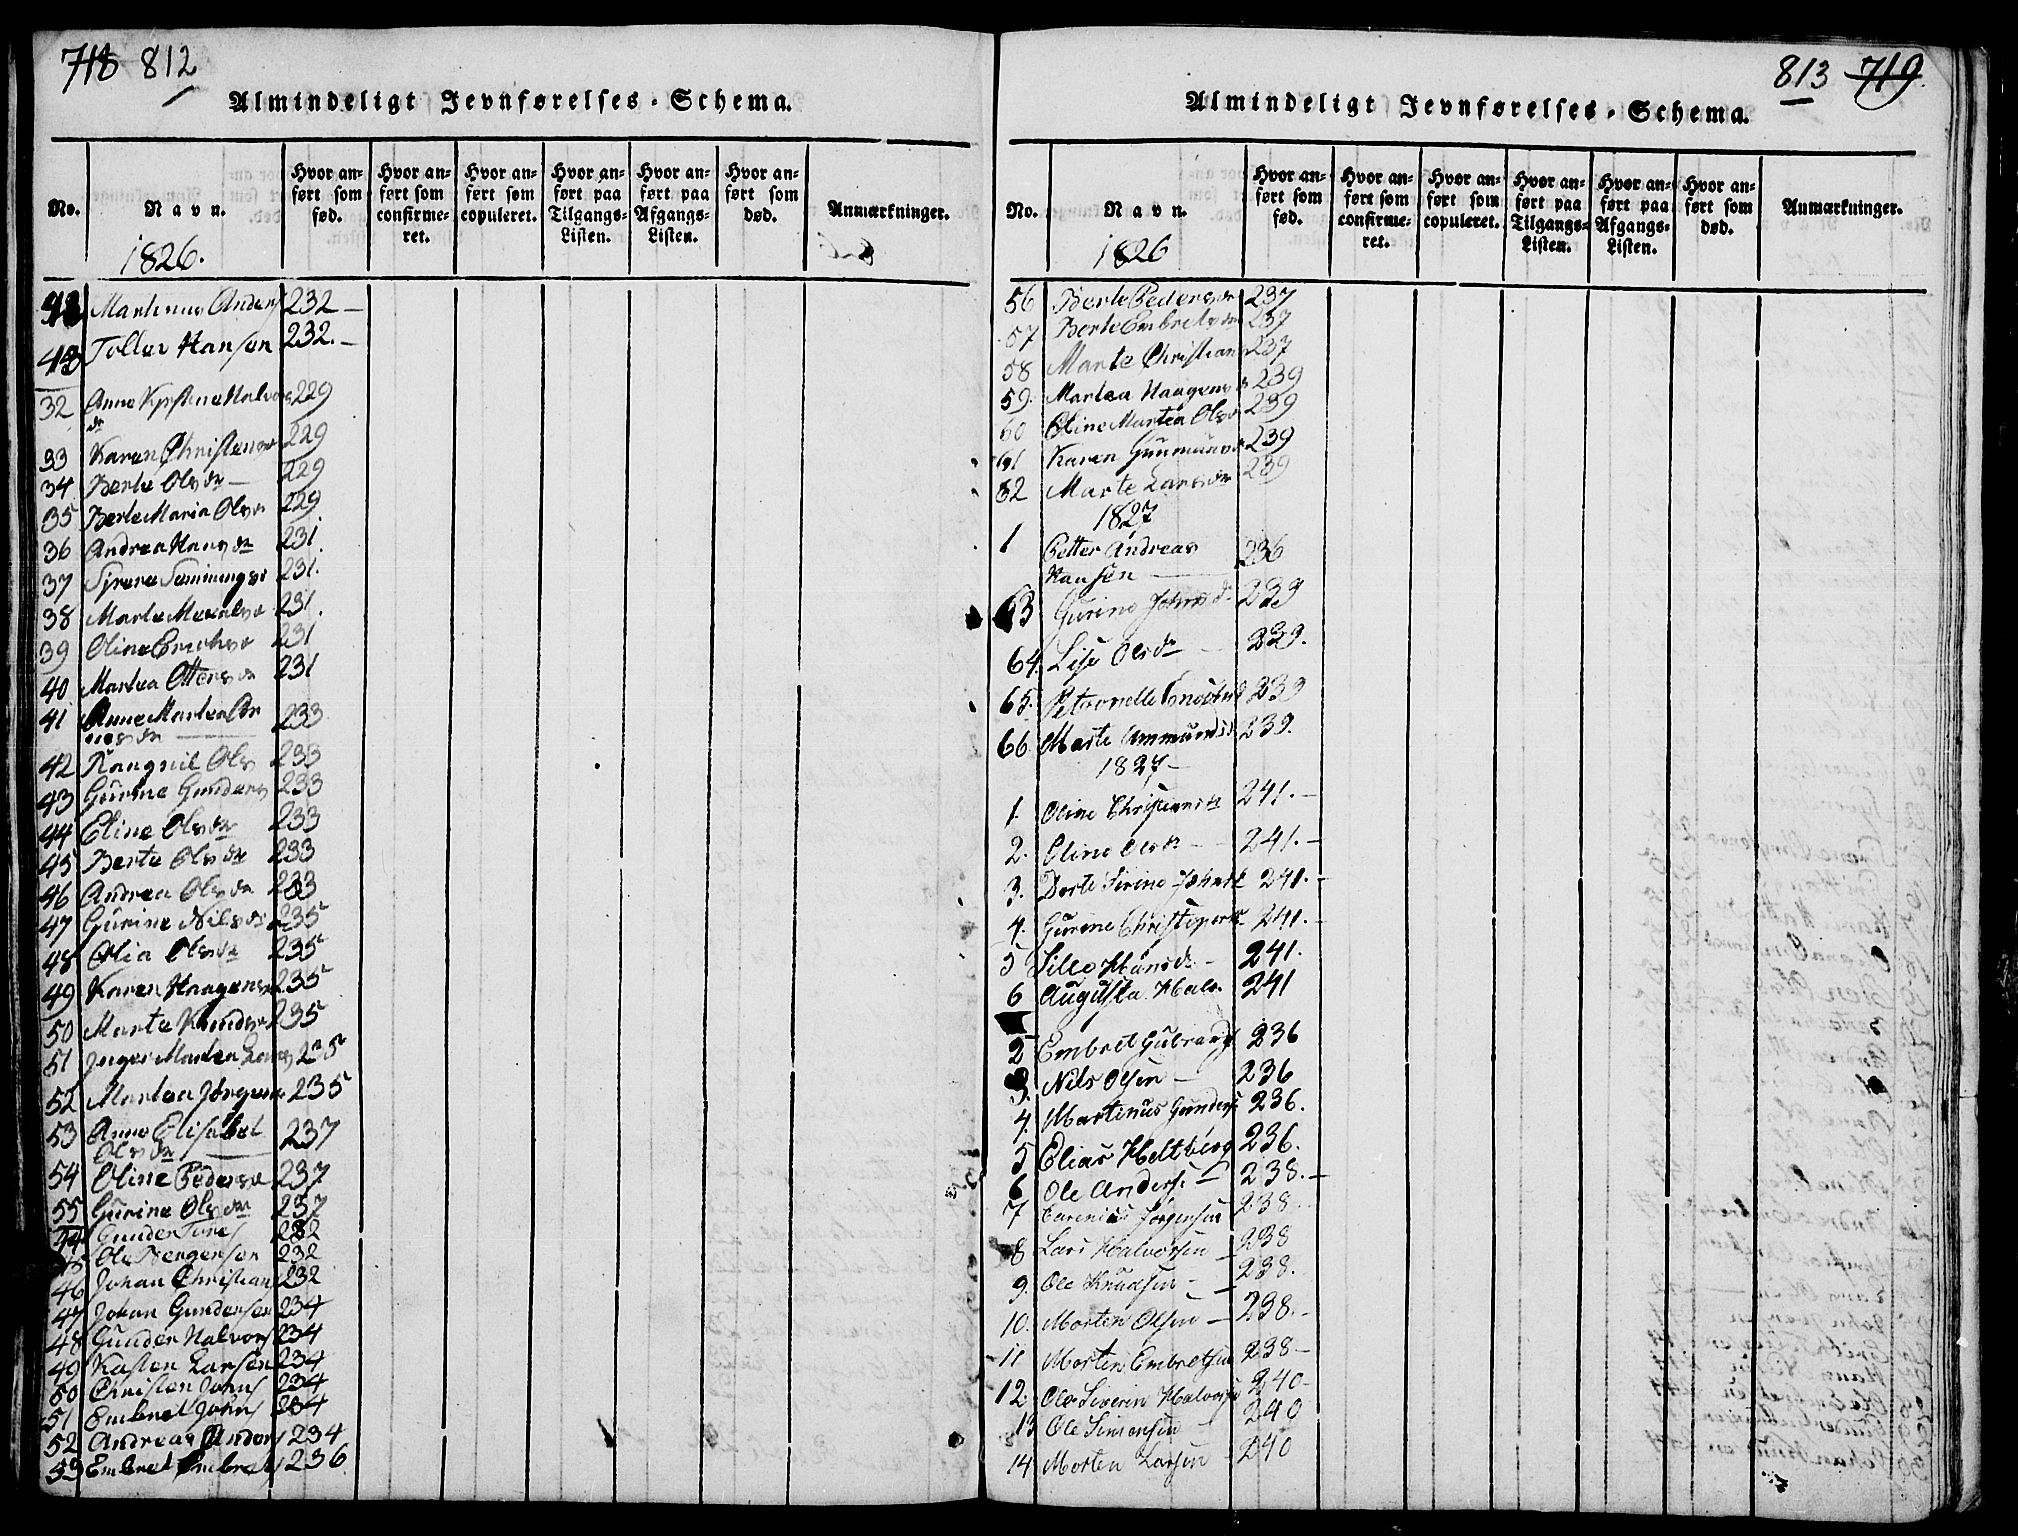 718 812
Almindeligt Jevnførelses-Schema.
No.
Navn.
Hvor anført som fød.
Hvor anført som confirmeret.
Hvor anført som copuleret.
Hvor anført paa Tilgangs-Listen.
Hvor anført paa Afgangs-Listen.
Hvor anført som død.
Anmærkninger.
1826.
Martinus Anders 232 –
43 Toller Hansen 232. –
32 Anne Kirstine Halvors dr 229
33 Karen Christensdr 229
34 Berte Olsdr – 229
35 Berte Maria Olsdr 229
36 Andrea Hansdr 231.
37 231.
38 Marte 231.
39 Oline Erichsdr 231
40 Martea Ottersdr 231
41 Anne Martea 233
42 Rangnil Ols 233
43 Gurine Gunders 233
44 Eline Olsdr 233
45 Berte Olsdr 233
46 Andrea Olsdr 233
47 Gurine Nilsdr 235
48 Olia Olsdr 235
49 Karen Haagensdr 235
50 Marte Knudsdr 235
51 Inger Martea Lars 235
52 Martea Jörgens 235
53 Anne Elisabet 237
Olsdr
54 Oline Pedersdr 237
55 Gurine Olsdr 237
44 Gunder 232
45 Ole Bergersen 232
46 Johan Christian 232
47 Johan Gundersen 234
48 Gunder Halvors 234
49 Kasten Larsen 234
50 Christen Johns 234
51 Embret Johns 234
52 Andreas Anders 234
53 Embret Embrets 236
813 719.
Almindeligt Jevnførelses-Schema.
No.
Navn.
Hvor anført som fød.
Hvor anført som confirmeret.
Hvor anført som copuleret.
Hvor anført paa Tilgangs-Listen.
Hvor anført paa Afgangs-Listen.
Hvor anført som død.
Anmærkninger.
1826
56 Berte Pedersdr 237
57 Berte Embretsdr 237
58 Marte Christians 237
59. Martea Haagens 239
60 Oline Martea Ols 239
61 Karen Gunmunds 239
62 Marte Larsdr 239
1827
1 Petter Andreas
Hansen – 236
63 Gurine Johnsd. 239
64. Lise Olsdr – 239.
65. Petronelle 239
66. Marte Ammundsd 239.
1827 –
1. Oline Christiansdr 241. –
2. Eline Olsdr – 241. –
3. Dorte Sirine Johnsd 241. –
4. Gurine Christopersdr 241. –
5 Sille Hansdr – 241.
6 Augusta Halv. 241
2 Embret Gulbrands 236
3. Nils Olsen – 236
4. Martinus Gunders 236.
5 Elias Heltberg 236.
6 Ole Anders. – 238. –
7 Jörgensen 238
8 Lars Halvorsen – 238
9. Ole Knudsen – 238.
10. Morten Olsen – 238. –
11 Morten Embretsen 238 –
12. Ole Siverin Halvors 240 –
13 Ole Simensen 240
14. Morten Larsen – 240